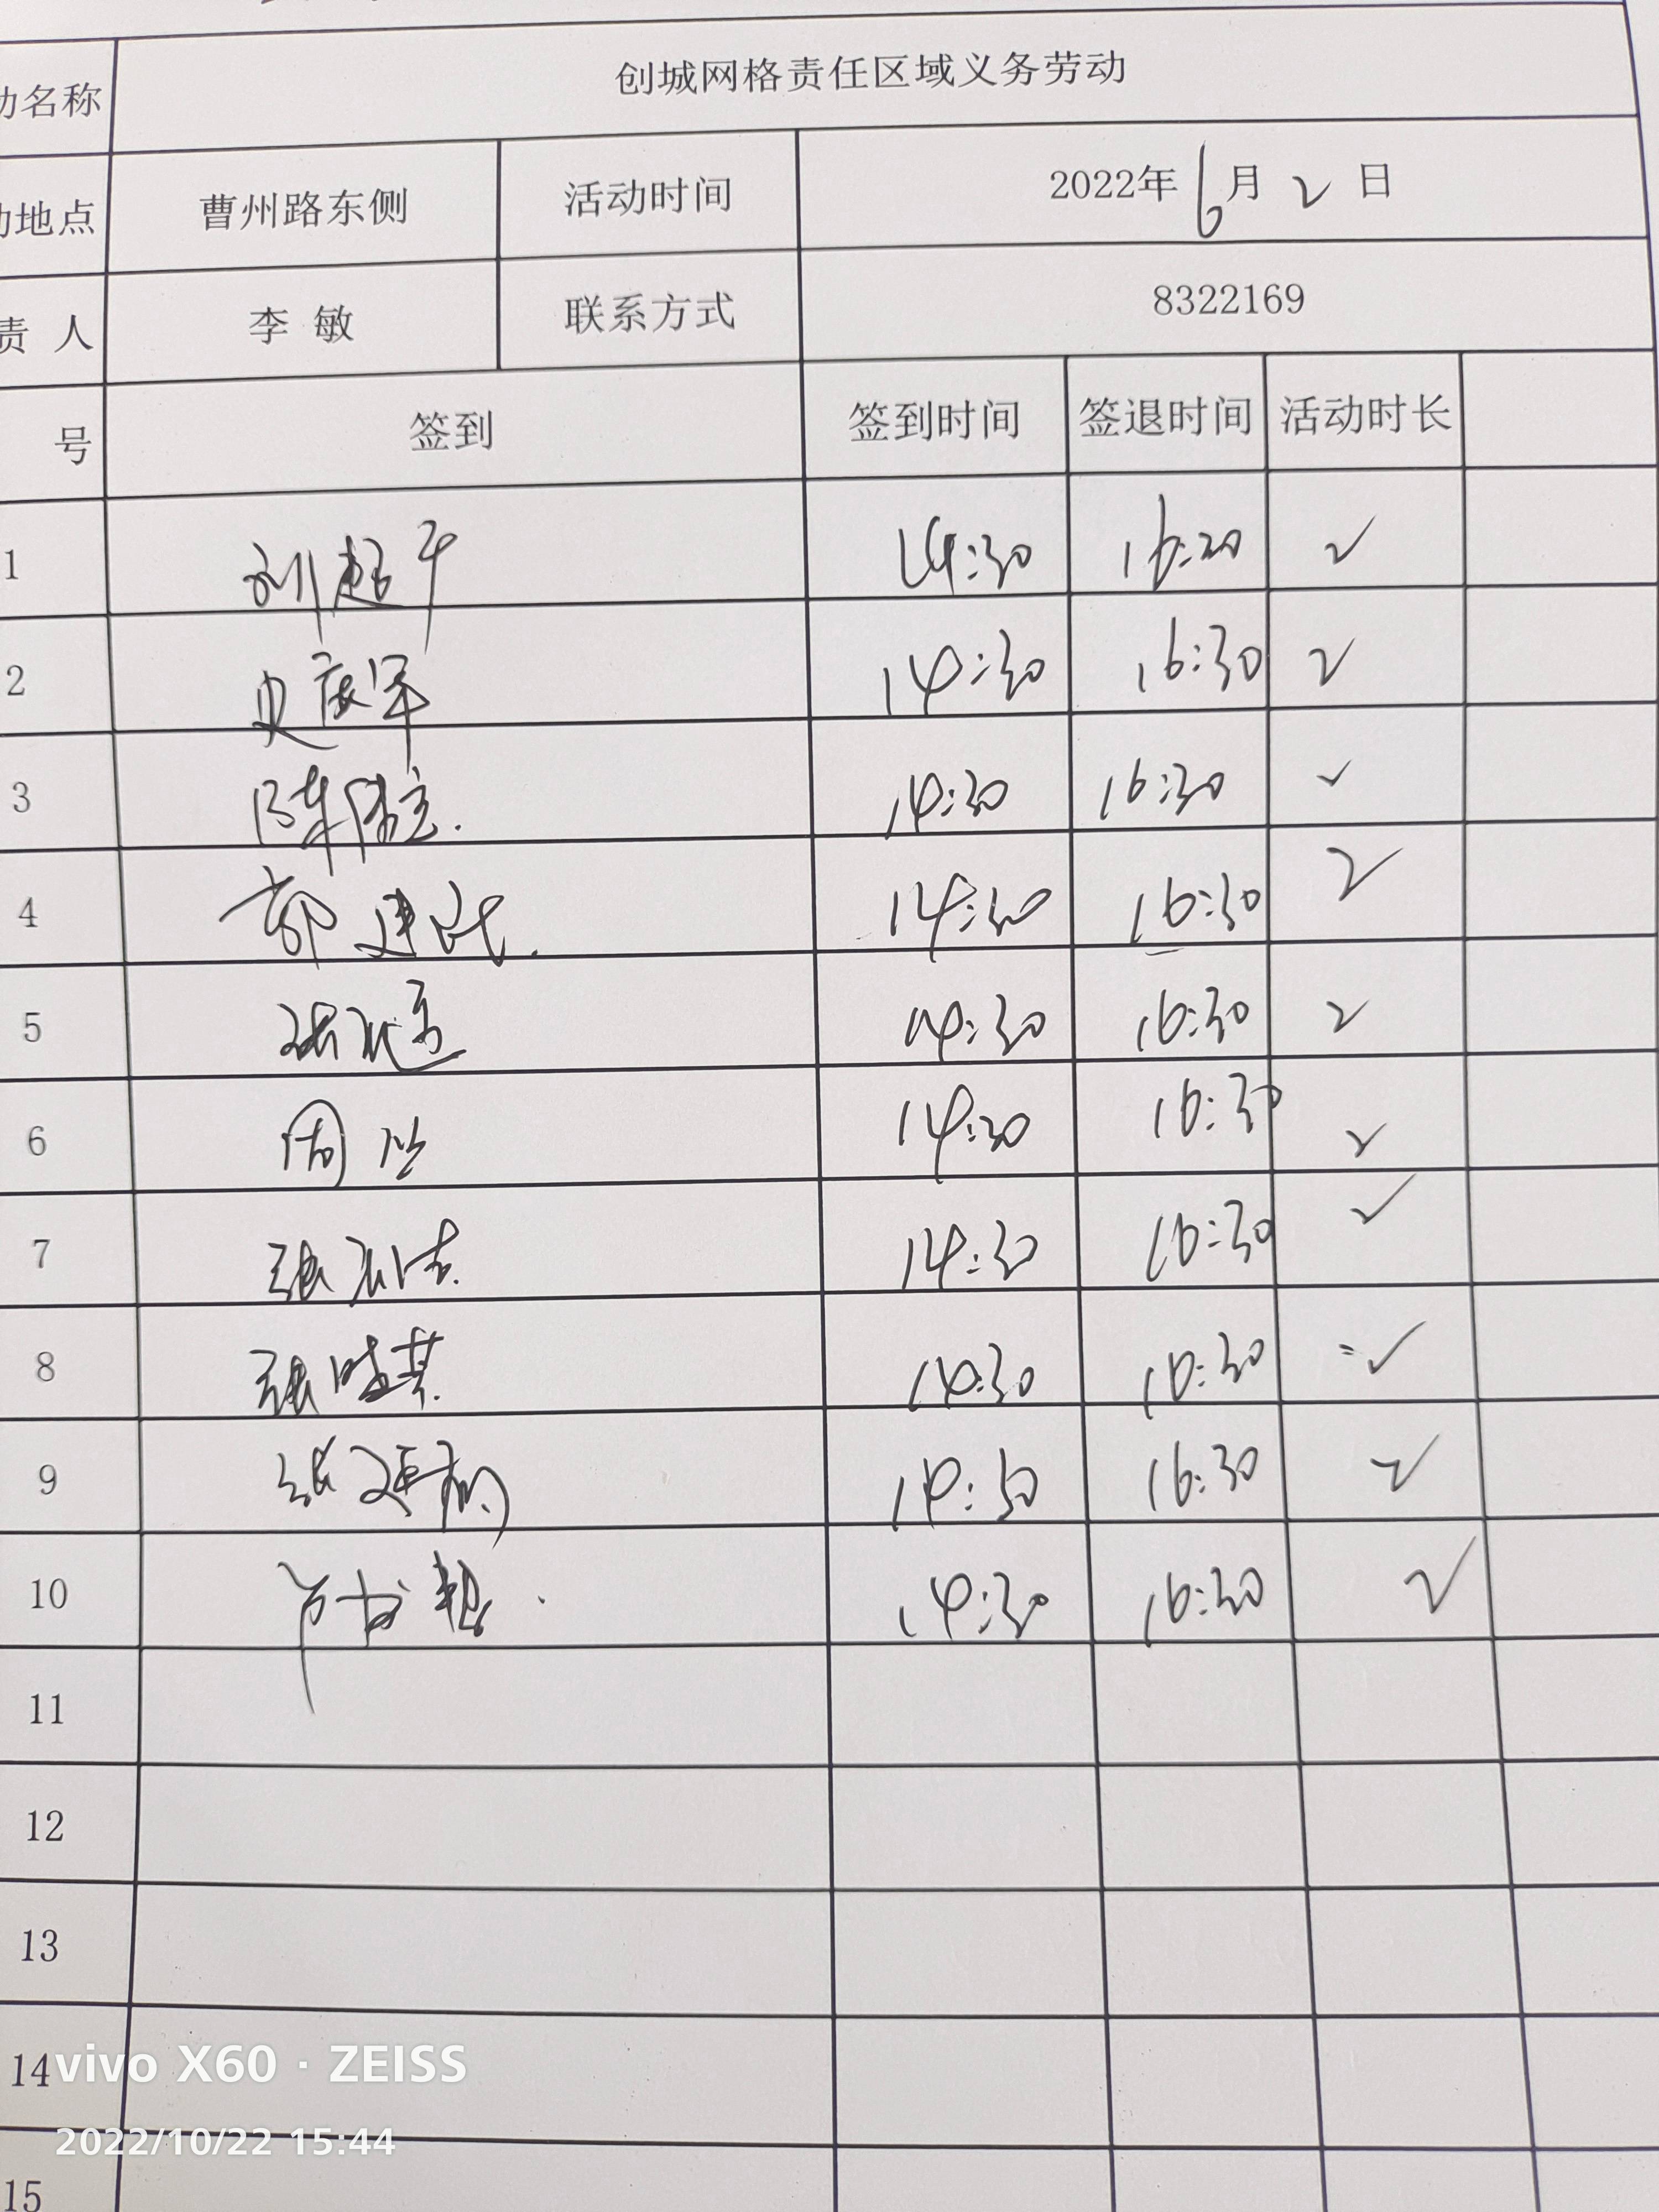 动名称 创城网格责任区域义务劳动
动地点 曹州路东侧 活动时间 2022年6月2日
责 人 李 敏 联系方式 8322169
号 签到 签到时间 签退时间 活动时长
1 刘超平 14:30 16:30 ✓
2 史庆军 14:30 16:30 ✓
3 陈 14:30 16:30 ✓
4 郭建 14:30 16:30 ✓
5 张 14:30 16:30 ✓
6 周 14:30 16:30 ✓
7 张 14:30 16:30 ✓
8 张晓其 14:30 16:30 ✓
9 张延 14:30 16:30 ✓
10 14:30 16:30 ✓
11
12
13
14
vivo X60 · ZEISS
2022/10/22 15:44
15